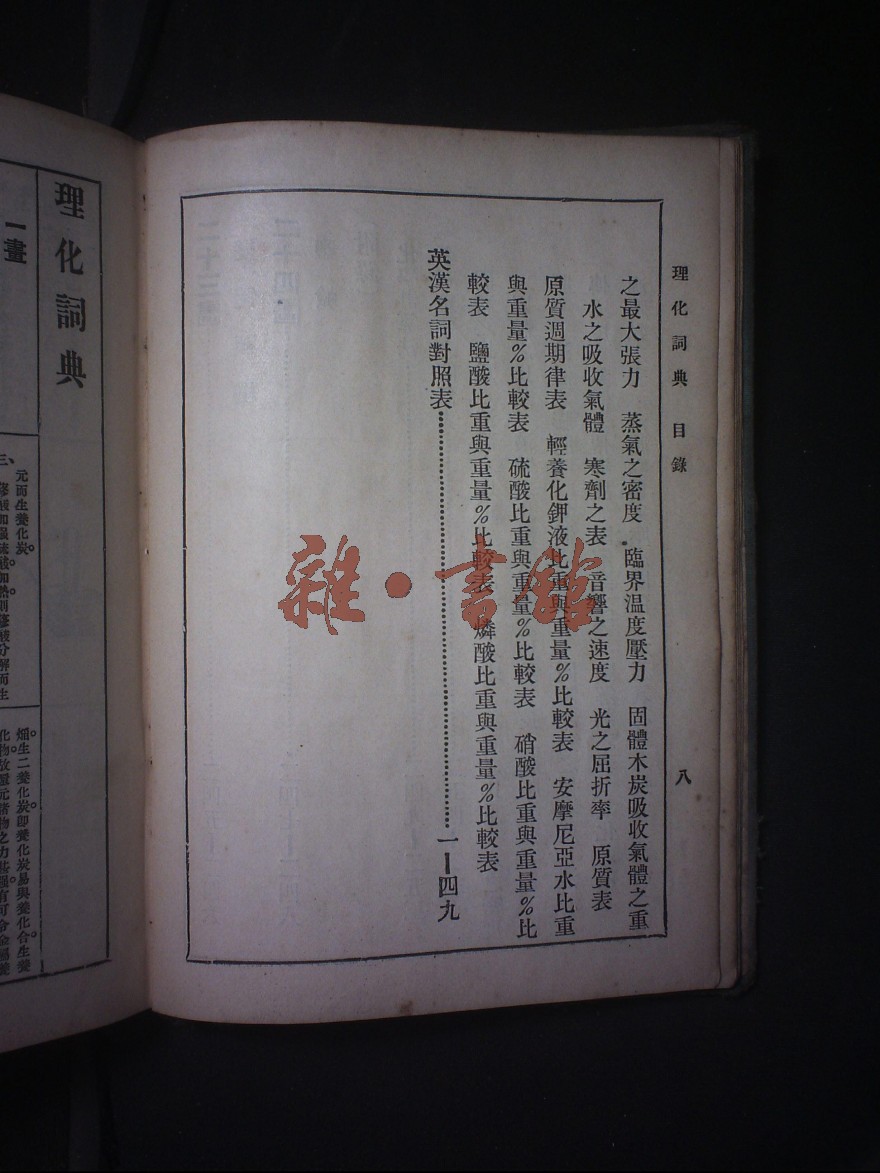 理化詞典 目錄 八
之最大張力 蒸氣之密度 臨界温度壓力 固體木炭吸收氣體之重
水之吸收氣體 寒劑之表 音響之速度 光之屈折率 原質表
原質週期律表 輕養化鉀液比重與重量%比較表 安摩尼亞水比重
與重量%比較表 硫酸比重與重量%比較表 硝酸比重與重量%比
較表 鹽酸比重與重量%比較表 燐酸比重與重量%比較表
英漢名詞對照表……一—四九
理化詞典
一畫
元而生養化炭。
三、蓚酸加強硫酸加熱則蓚酸分解而生
燗生二養化炭卽養化炭易與養化合生養
化物故還元諸物之力甚強有可令金屬養
雜·書館